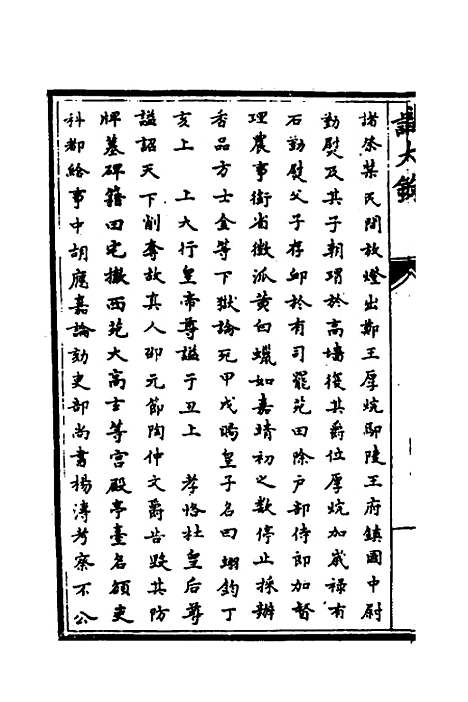 識大錄
諸祭禁民間放燈出鄭王厚烷鄢陵王府鎮國中尉
勤熨及其子朝㻗於高墻復其爵位厚烷加歲祿有
石勤熨父子存卹於有司罷苑田除戶部侍郎加督
理農事銜省徵派黃白蠟如嘉靖初之數停止採辦
香品方士金等下獄論死甲戌賜皇子名曰翊鈞丁
亥上　上大行皇帝尊謚于丑上　孝恪杜皇后尊
謚詔天下削奪故真人邵元節陶仲文爵告毀其防
牌墓碑籍田宅撤西苑大高士等宮殿亭臺名額吏
科都給事中胡應嘉論劾吏部尚書楊溥考察不公